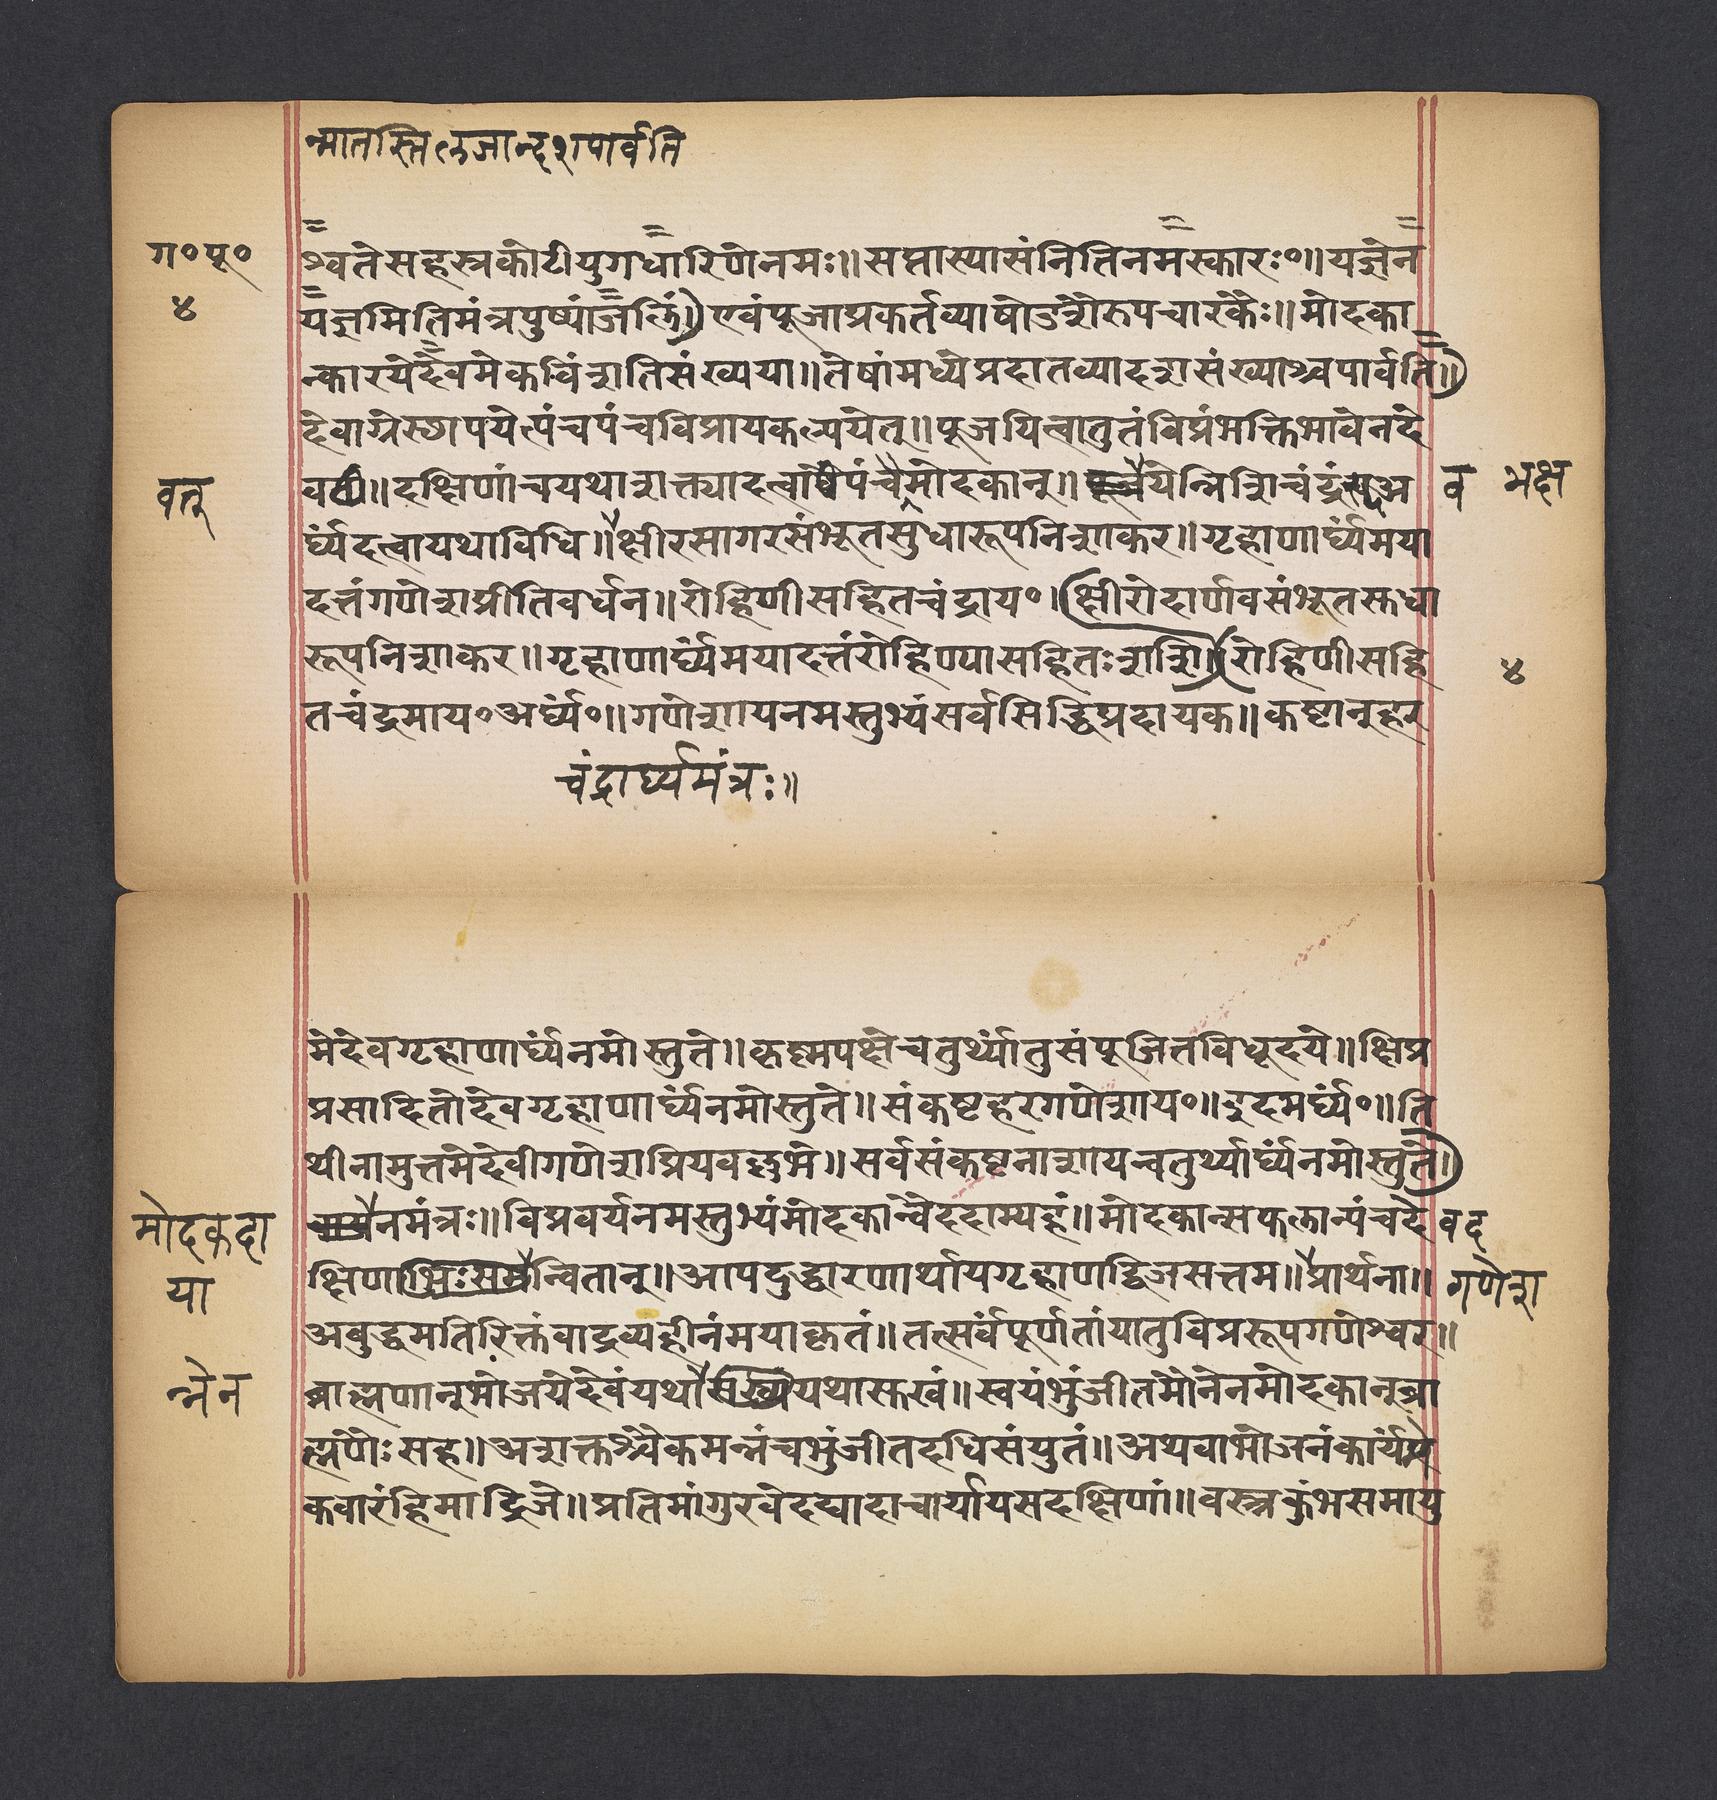 न्मातस्तिलजान्दशपार्वति
ग॰पू॰
४
श्वतेसहस्रकोटीयुगधारिणेनमः॥सप्तास्यासंनितिनमस्कारः॰॥यज्ञेन
यज्ञमितिमंत्रपुष्पांजलिं॥एवंपूजाप्रकर्तव्याषोडशैरुपचारकैः॥मोदका
न्कारयेद्देवमेकविंशतिसंख्यया॥तेषांमध्येप्रदातव्यादशसंख्याश्चपार्वति॥
देवाग्रेस्थापयेत्पंचपंचविप्रायकल्पयेत्॥पूजयित्वातुतंविप्रंभक्तिभावेनदे
वत्
व॥दक्षिणांचयथाशक्त्यादत्वापंचैमोदकान्॥येन्निशिचंद्रंअ
व भक्ष
र्घ्यंदत्वायथाविधि॥क्षीरसागरसंभूतसुधारूपनिशाकर॥गृहाणार्घ्यंमया
दत्तंगणेशप्रीतिवर्धन॥रोहिणीसहितचंद्राय॰।क्षीरोदार्णवसंभूतसुधा
रूपनिशाकर॥गृहाणार्घ्यंमयादत्तंरोहिण्यासहितःशशि॥रोहिणीसहि
४
तचंद्रमाय॰अर्घ्यं॰॥गणेशायनमस्तुभ्यंसर्वसिद्धिप्रदायक॥कष्टान्हर
चंद्रार्घ्यमंत्रः॥
मेदेवगृहाणार्घ्यंनमोस्तुते॥कृष्णपक्षेचतुर्थ्यांतुसंपूजितविधूदये॥क्षिप्र
प्रसादितोदेवगृहाणार्घ्यंनमोस्तुते॥संकष्टहरगणेशाय॰॥इदमर्घ्यं॰॥ति
थीनामुत्तमेदेवीगणेशप्रियवल्लभे॥सर्वसंकष्टनाशायचतुर्थ्यार्घ्यंनमोस्तुते॥
मोदकदा
नमंत्रः॥विप्रवर्यनमस्तुभ्यंमोदकान्वैददाम्यहं॥मोदकान्सफलान्पंचदे
वद्
या
क्षिणान्वितान्॥आपदुद्धारणार्थायगृहाणद्विजसत्तम॥प्रार्थना॥
गणेश
अबुद्धमतिरिक्तंवाद्रव्यहीनंमयाकृतं॥तत्सर्वंपूर्णतांयातुविप्ररूपगणेश्वर॥
न्नेन
ब्राह्मणान्भोजयेद्देवंयथायथासुखं॥स्वयंभुंजीतमौनेनमोदकान्ब्रा
ह्मणैःसह॥अशक्तश्चैकमन्नंचभुंजीतदधिसंयुतं॥अथवाभोजनंकार्यंमे
कवारंहिमाद्रिजे॥प्रतिमांगुरवेदद्यादाचार्यायसदक्षिणां॥वस्त्रकुंभसमायु